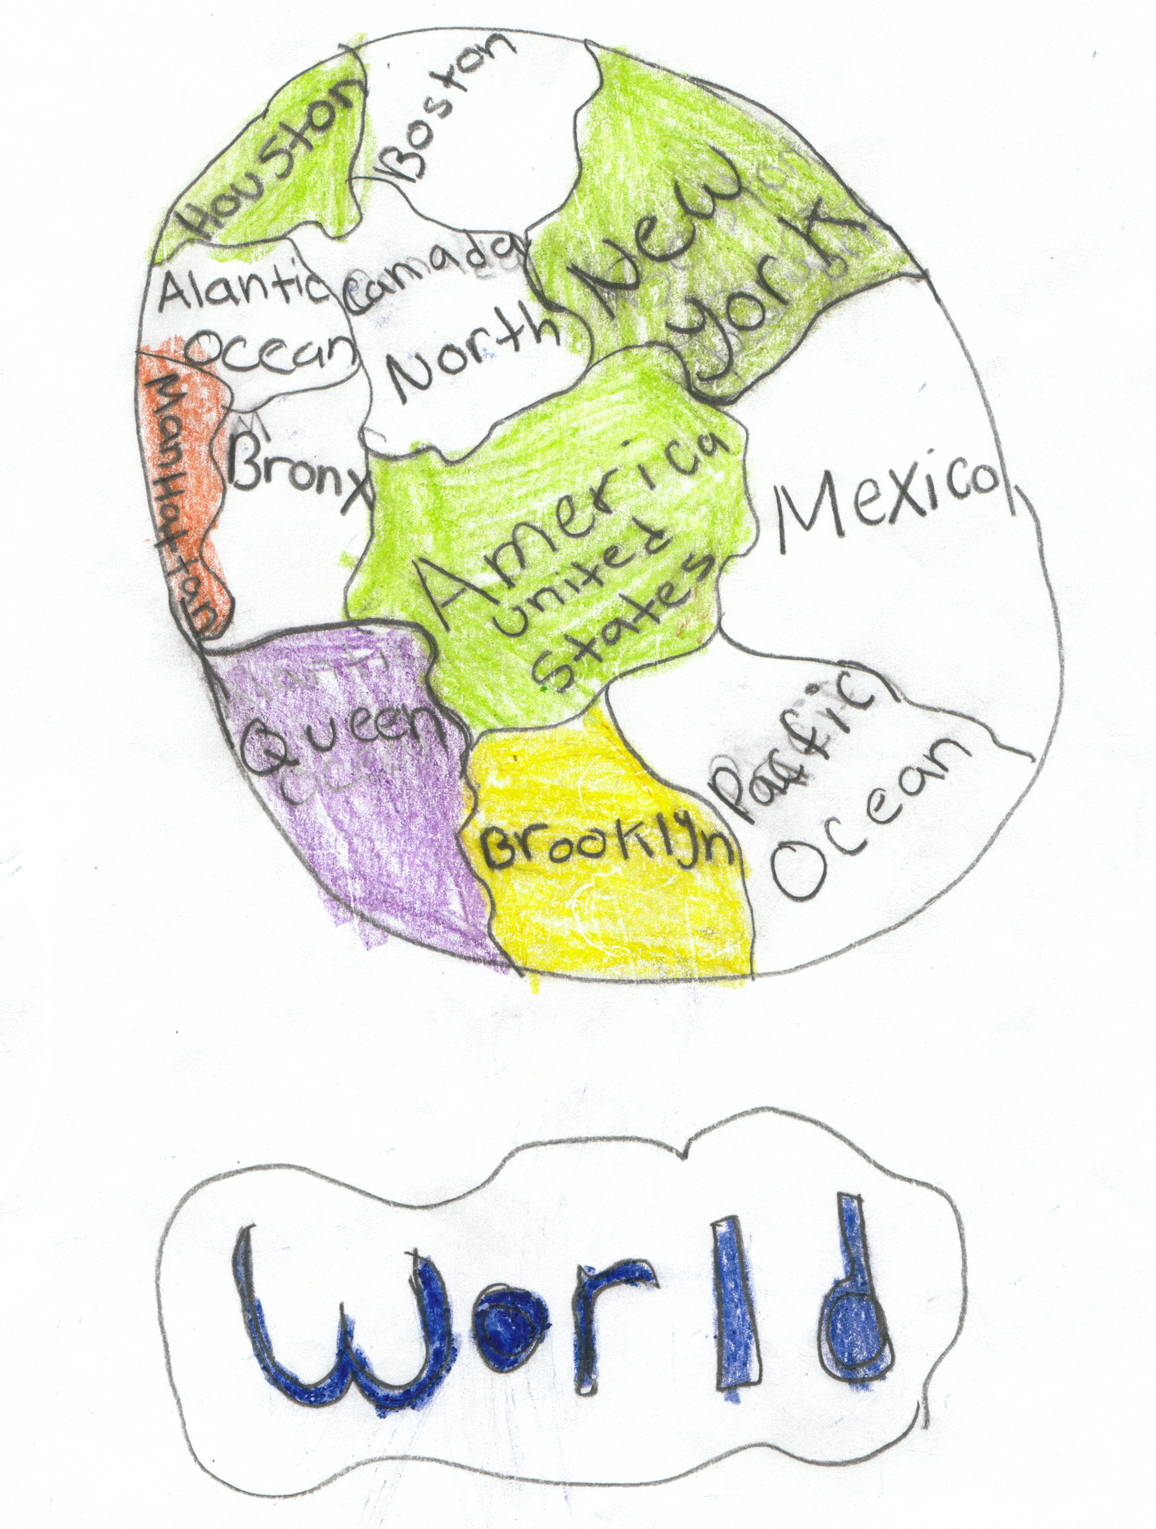 Houston
Boston
New
York
Alantic
Ocean
Camada
North
ManHattan
Bronx
America
united
states
Mexico
Queen
Brooklyn
Pacfic
Ocean
World